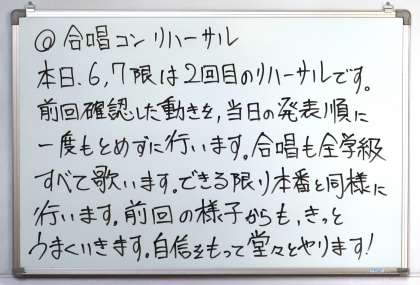 @ 合唱コン リハーサル
本日、6,7限は2回目のリハーサルです。
前回確認した動きを,当日の発表順に
一度もとめずに行います。合唱も全学級
すべて歌います。できる限り本番と同様に
行います。前回の様子からも,きっと
うまくいきます。自信をもって堂々とやります!